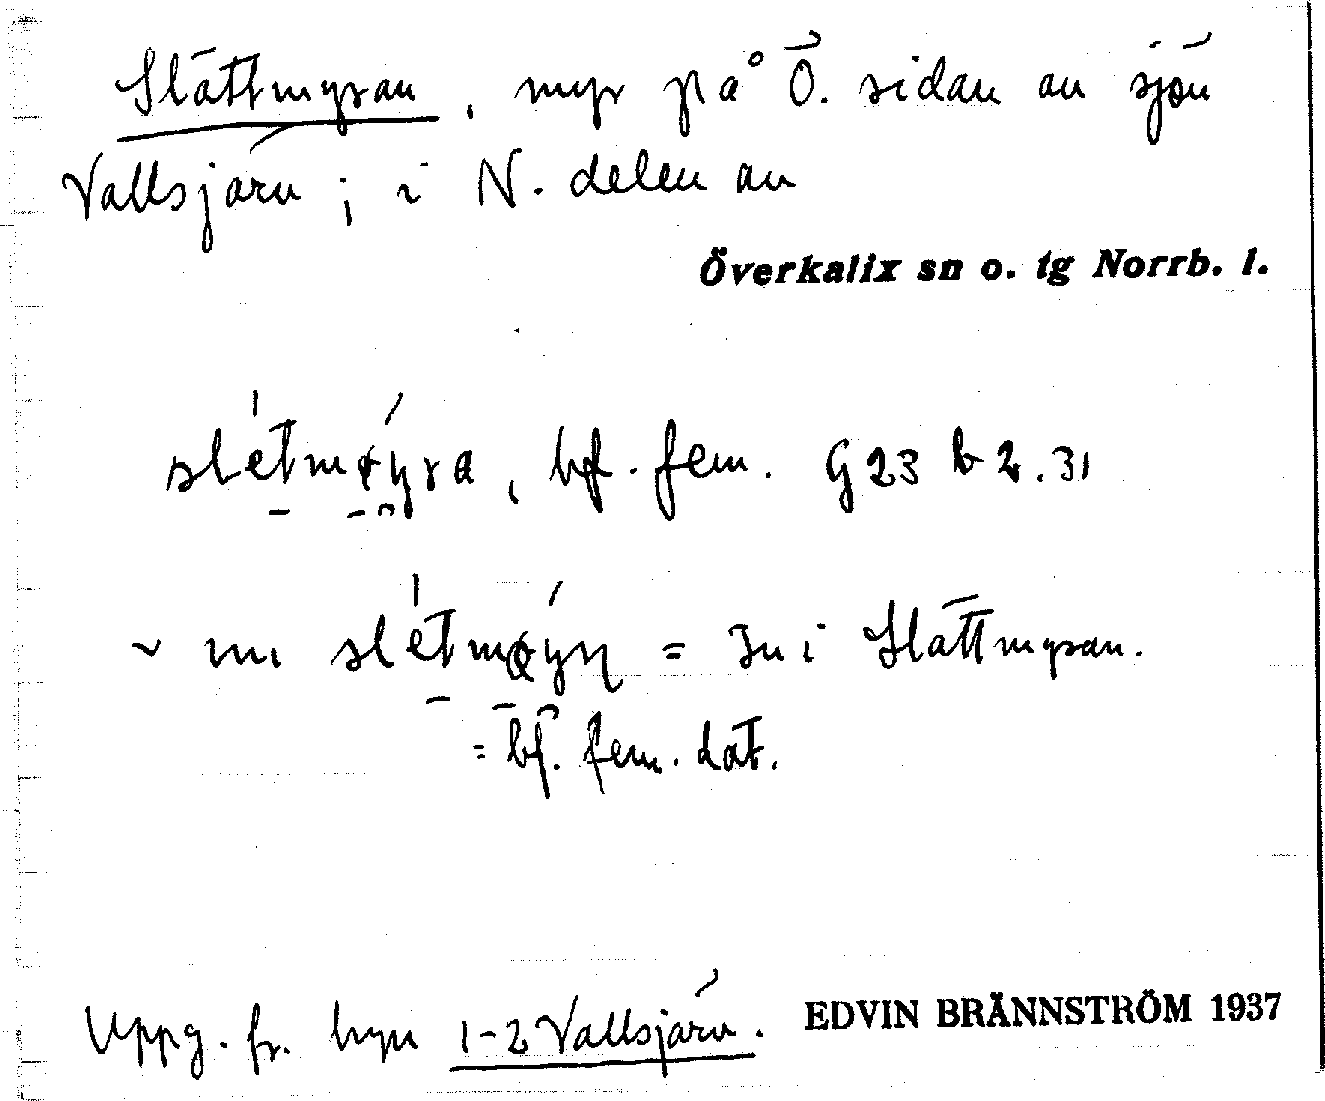 Slåttmyran, myr på Ö. sidan av sjön
Vallsjärv; i N. delen av
Överkalix sn o. tg Norrb. l.
slétmøyra, bf. fem. G23 b 2.31
~ ini slétmøyn = In i Slåttmyran.
= bf. fem. dat.
Uppg. fr. byn 1-2 Vallsjärv. EDVIN BRÄNNSTRÖM 1937